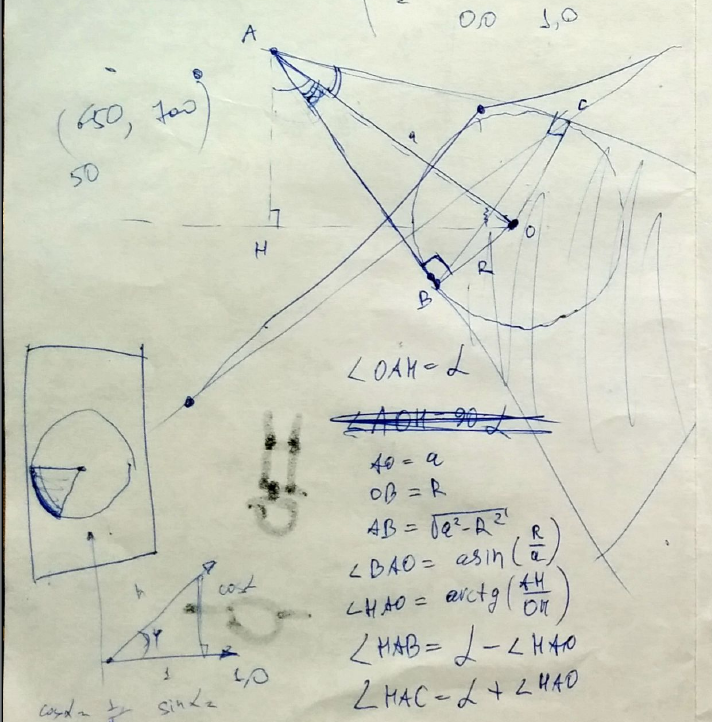 0,0 1,0
A
(650, 700)
50
a
C
O
H
R
B
∠OAH = L
AO = a
OB = R
AB = √a²-R²
∠BAO = asin(R/a)
∠HAO = arctg(AH/OH)
∠HAB = L - ∠HAO
∠HAC = L + ∠HAO
h
cosL
φ
1
1,0
cosL =
sinL =